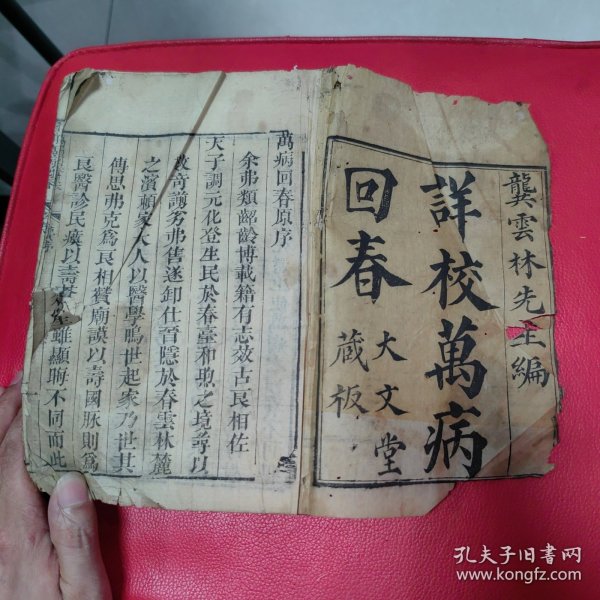 龔雲林先生編
詳校萬病
回春
大文堂
藏板
萬病回春原序
余弗類齠齡博載籍有志效古良相佐
天子調元化登生民於春臺和煦之境尋以
數奇謭劣弗售遂卸仕晉隱於春雲林麓
之濱頼家大人以醫學鳴世起家乃世其
傳思弗克為良相贊廟謨以壽國脉則為
良醫診民瘼以壽
雖顯晦不同而此
孔夫子旧书网
www.kongfz.com